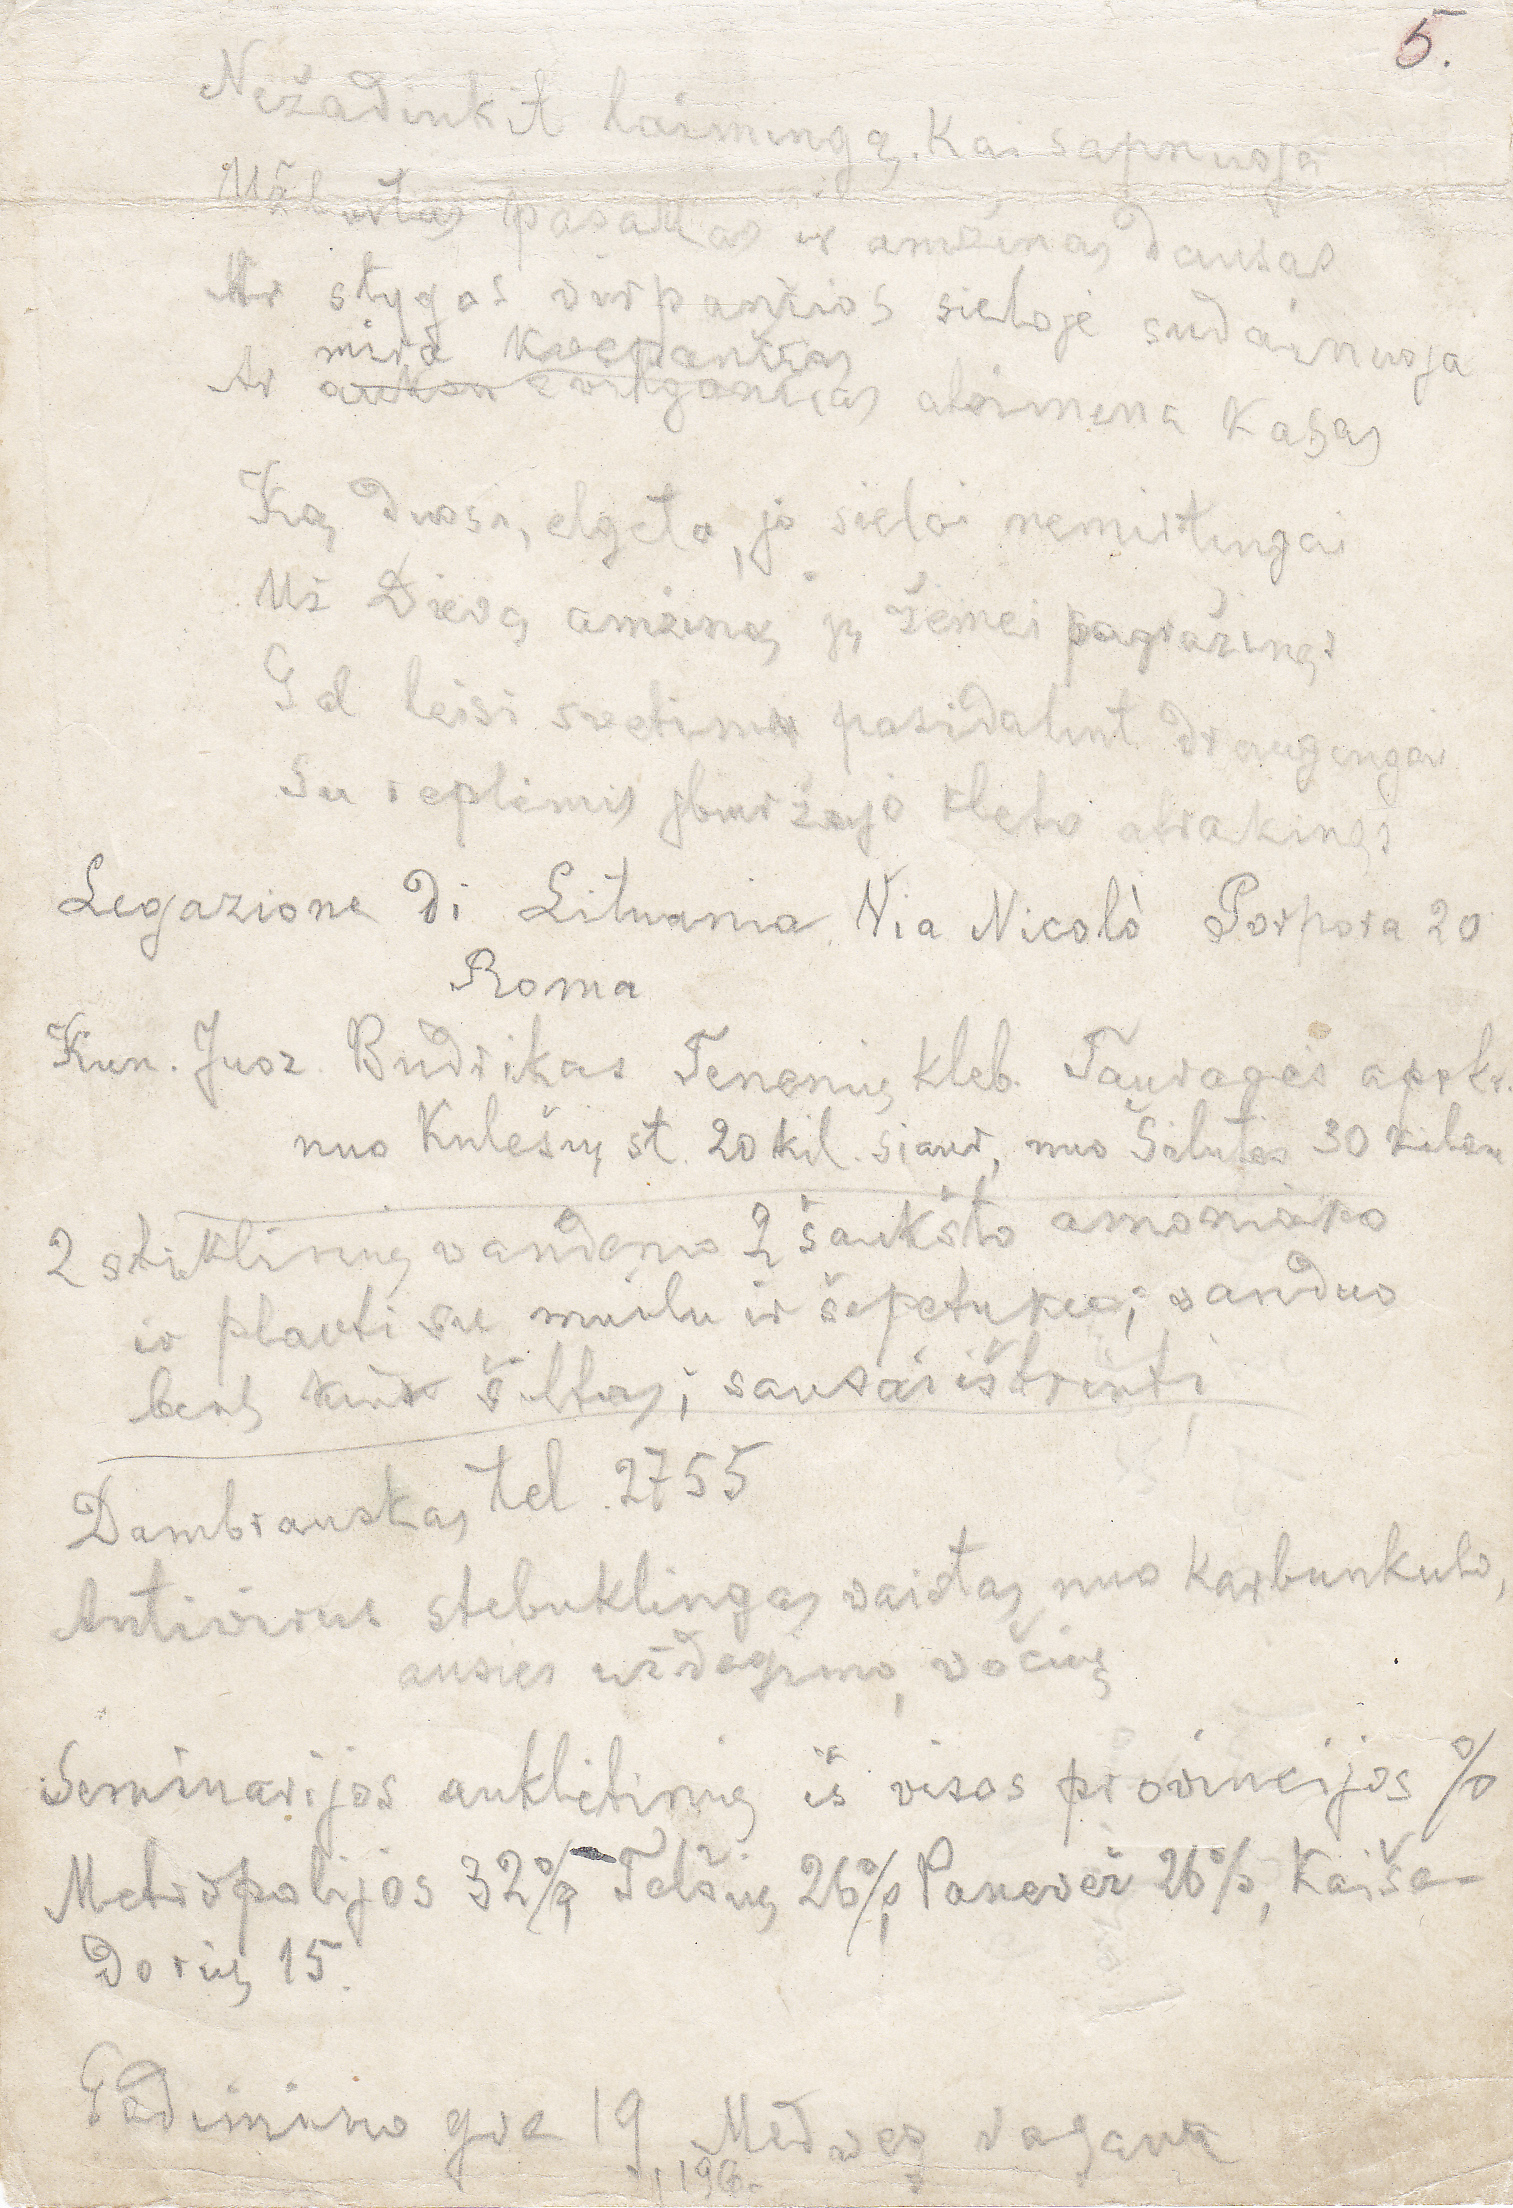 5.
Nežadinkit laimingą. Kai sapnuoja
Užburtas pasakas ir amžinas dausas
Ar stygos virpančios sieloje sudainuoja
mirą kvepančias
Ar žvilgančias atsimena kasas
Ką duosi, elgeta, jo sielai nemirtingai
Už Dievą amžiną ją žemei pagražinęs
Gal leisi svetimu pasidalint draugingai
Su replėmis atrakinęs
Legazione di Lituania Via Nicolò Porpora 20
Roma
Kun. Juoz. Budrikas Tenenių kleb. Tauragės apskr.
nuo Kulešių st. 20 kil. siaur, nuo Šilutės 30
2 stiklinių vandenio 2 šaukšto amoniako
ir plauti su muilu ir šepetuku; vanduo
šiltas; sausai ištrinti
Dambrauskas tel. 2755
Antivirus stebuklingas vaistas nuo karbunkulo,
ausies uždegimo, vočių
Seminarijos auklėtinių iš visos provincijos %
Metropolijos 32%, Telšių 26%, Panevėž 26%, Kaiše-
dorių 15.
Gedimino gve 19 Medveg